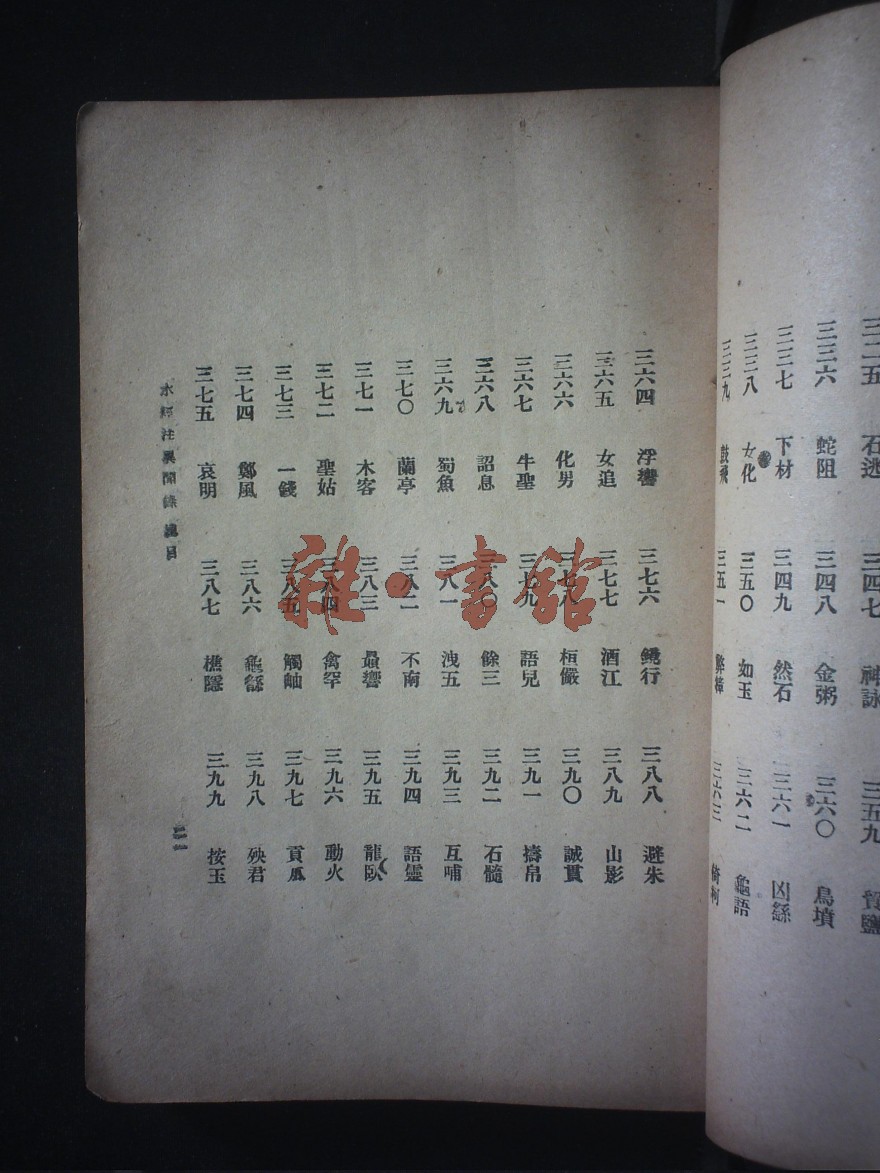 三三五 石逃 三四七 神詠 三五九
三三六 蛇阻 三四八 金粥 三六〇 鳥墳
三三七 下材 三四九 然石 三六一
三三八 女化 三五〇 如玉 三六二 龜語
三三九 鼓飛 三五一 三六三
三六四 浮響 三七六 鐃行 三八八 避朱
三六五 女追 三七七 酒江 三八九 山影
三六六 化男 三七八 桓儼 三九〇 誠貫
三六七 牛聖 三七九 語兒 三九一 擣帛
三六八 詔息 三八〇 餘三 三九二 石髓
三六九 蜀魚 三八一 洩五 三九三 互哺
三七〇 蘭亭 三八二 不南 三九四 語靈
三七一 木客 三八三 曑響 三九五 龍臥
三七二 聖姑 三八四 禽罕 三九六 動火
三七三 一錢 三八五 觸岫 三九七 貢瓜
三七四 鄭風 三八六 龜繇 三九八 殃君
三七五 哀明 三八七 樵隱 三九九 按玉
水經注異聞錄 總目
雜·書館